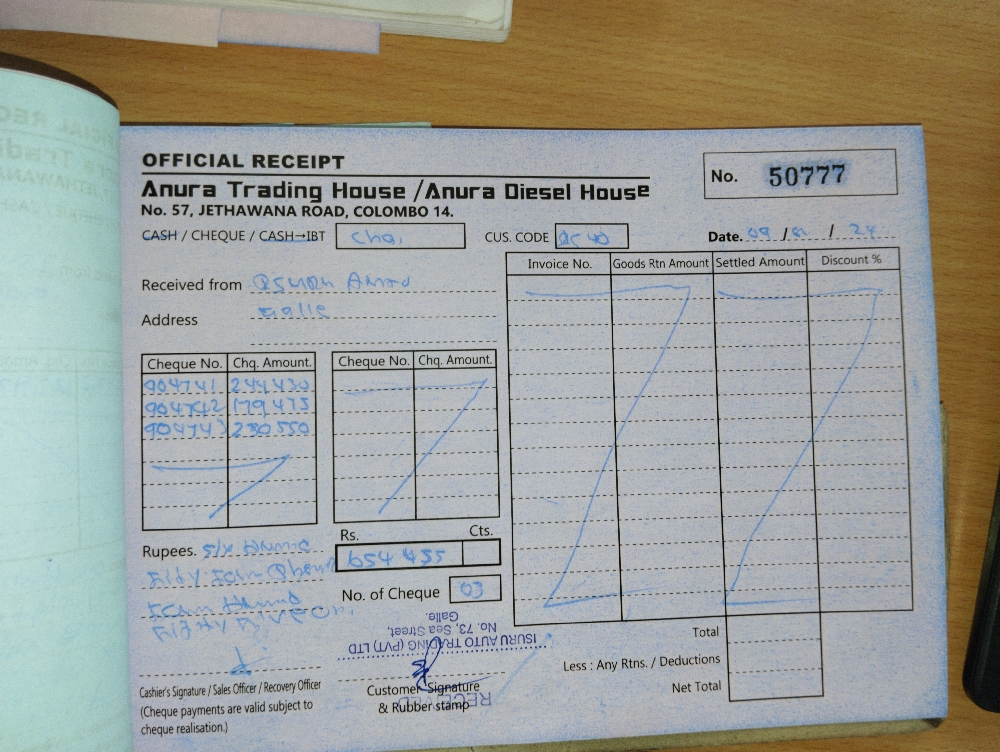 OFFICIAL RECEIPT
Anura Trading House / Anura Diesel House
No. 57, JETHAWANA ROAD, COLOMBO 14.
No. 50777
CASH / CHEQUE / CASH→IBT
CUS. CODE
Date. 09 / / 24
Received from
Address Galle
Invoice No. Goods Rtn Amount Settled Amount Discount %
Cheque No. Chq. Amount. Cheque No. Chq. Amount.
904741 244 430
904742 179 475
904743 230 550
Rs. Cts.
654 455
Rupees.
No. of Cheque 03
No. 73, Sea Street,
Galle.
ISURU AUTO TRADING (PVT) LTD
RECEIVED
Cashier's Signature / Sales Officer / Recovery Officer
(Cheque payments are valid subject to
cheque realisation.)
Customer Signature
& Rubber stamp
Total
Less : Any Rtns. / Deductions
Net Total